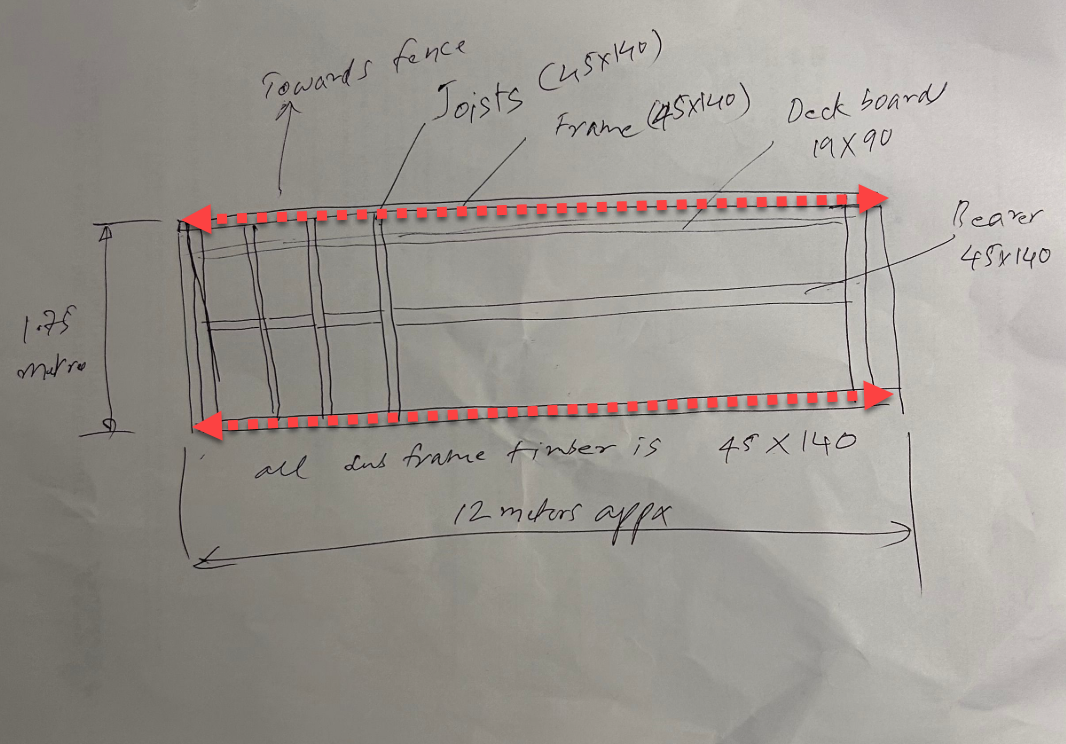 Towards fence
Joists (45X140)
Frame (45X140)
Deck board
19 X 90
Bearer
45X140
1.75
metre
all sub frame timber is 45 X 140
12 meters appx